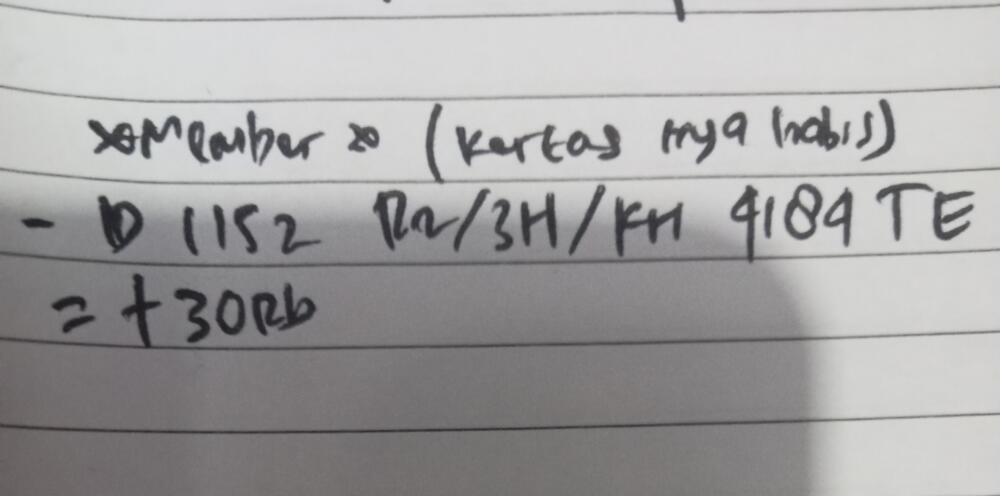 **Member** (kertas nya habis)
- D 1152 R2/3H/KH 4184 TE
= +30Rb